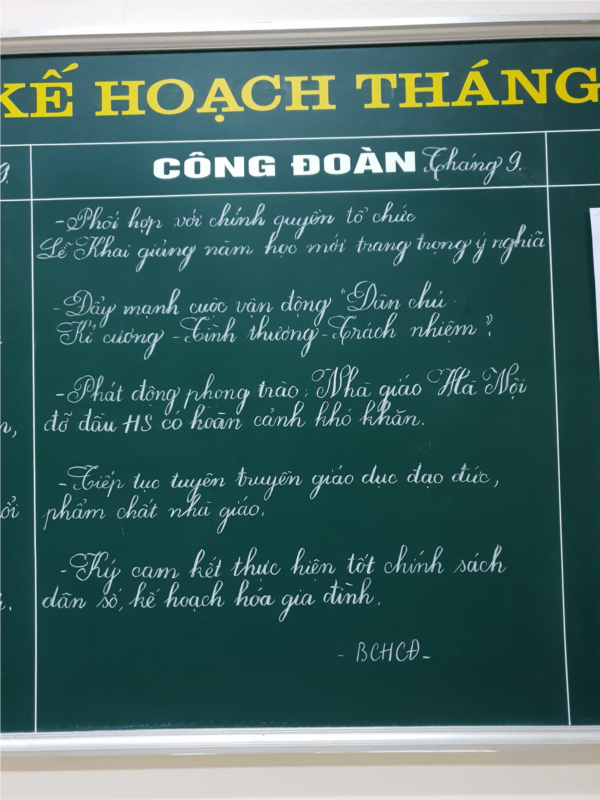 KẾ HOẠCH THÁNG
9.
CÔNG ĐOÀN Tháng 9.
- Phối hợp với chính quyền tổ chức
Lễ Khai giảng năm học mới trang trọng ý nghĩa
- Đẩy mạnh cuộc vận động "Dân chủ -
Kỉ cương - Tình thương - Trách nhiệm".
- Phát động phong trào: Nhà giáo Hà Nội
đỡ đầu HS có hoàn cảnh khó khăn.
- Tiếp tục tuyên truyền giáo dục đạo đức,
ổi phẩm chất nhà giáo.
- Ký cam kết thực hiện tốt chính sách
dân số, kế hoạch hóa gia đình.
- BCHCĐ -